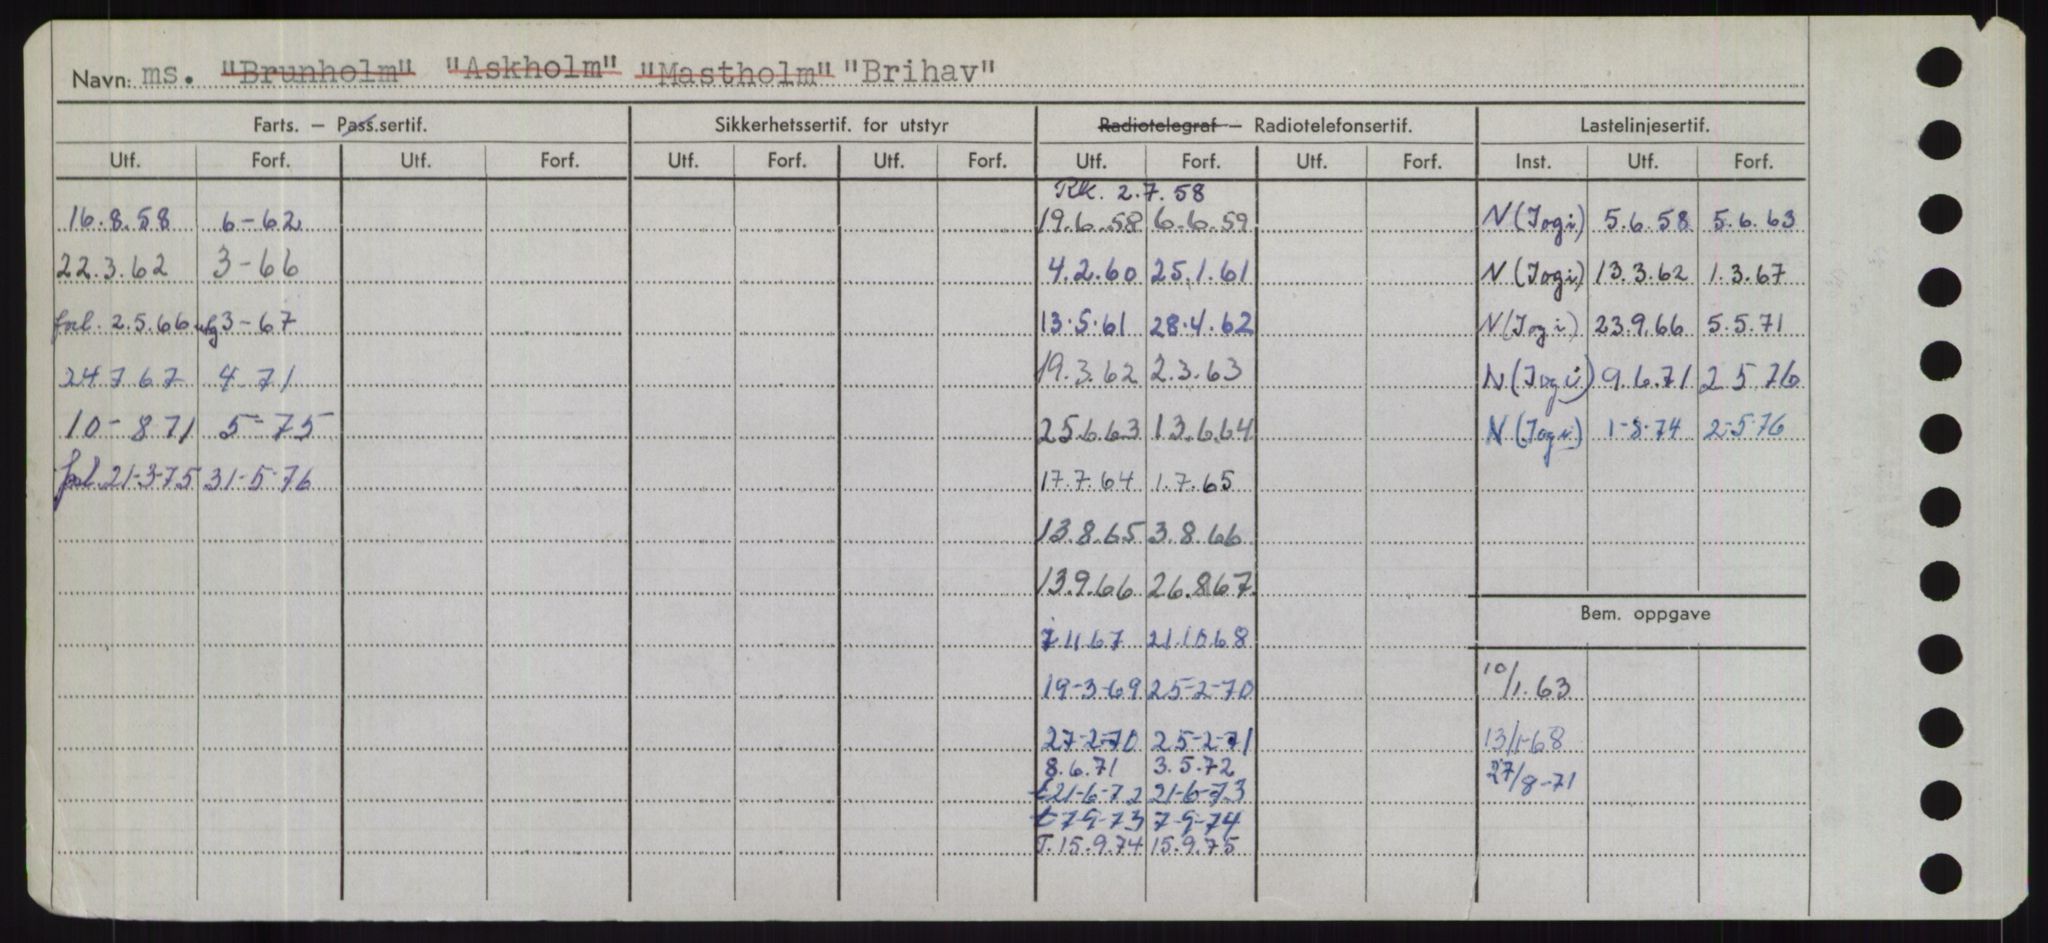 Navn: ms. "Brunholm" "Askholm" "Mastholm" "Brihav"
Farts. — Pass.sertif. Sikkerhetssertif. for utstyr Radiotelegraf — Radiotelefonsertif. Lastelinjesertif.
Utf. Forf. Utf. Forf. Utf. Forf. Utf. Forf. Utf. Forf. Utf. Forf. Inst. Utf. Forf.
RK. 2.7.58
16.8.58 6-62 19.6.58 6.6.59 N (Jogi) 5.6.58 5.6.63
22.3.62 3-66 4.2.60 25.1.61 N (Jogi) 13.3.62 1.3.67
forl. 2.5.66 3-67 13.5.61 28.4.62 N (Jogi) 23.9.66 5.5.71
24 7 67 4.71 19.3.62 2.3.63 N (Jogi) 9.6.71 2 5 76
10-871 5-75 25.6.63 13.6.64 N (Jogi) 1-8-74 2-5-76
forl. 21-3-75 31-5-76 17.7.64 1.7.65
13.8.65 3.8.66
13.9.66 26.8.67
Bem. oppgave
7 11.67 21.10.68
19-3-69 25-2-70 10/1.63
27-2-70 25-2-71 13/1-68
8.6.71 3.5.72 27/8-71
t 21-6-72 21-6-73
t 7-9-73 7-9-74
T. 15.9.74 15.9.75